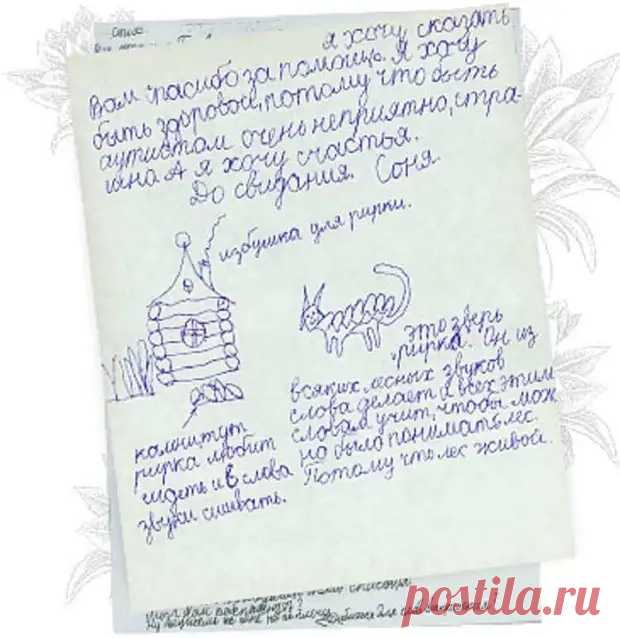 я хочу сказать
Вам спасибо за помощь. Я хочу
быть здоровой, потому что быть
аутистом очень неприятно, стра-
шна А я хочу счастья.
До свидания. Соня.
избушка для рирки.
это зверь
рирка. Он из
всяких лесных звуков
слова делает и всех этим
словам учит, чтобы мож
но было понимать лес.
Потому что лес живой.
камни тут
рирка любит
сидеть и в слова
звуки сшивать.
postila.ru